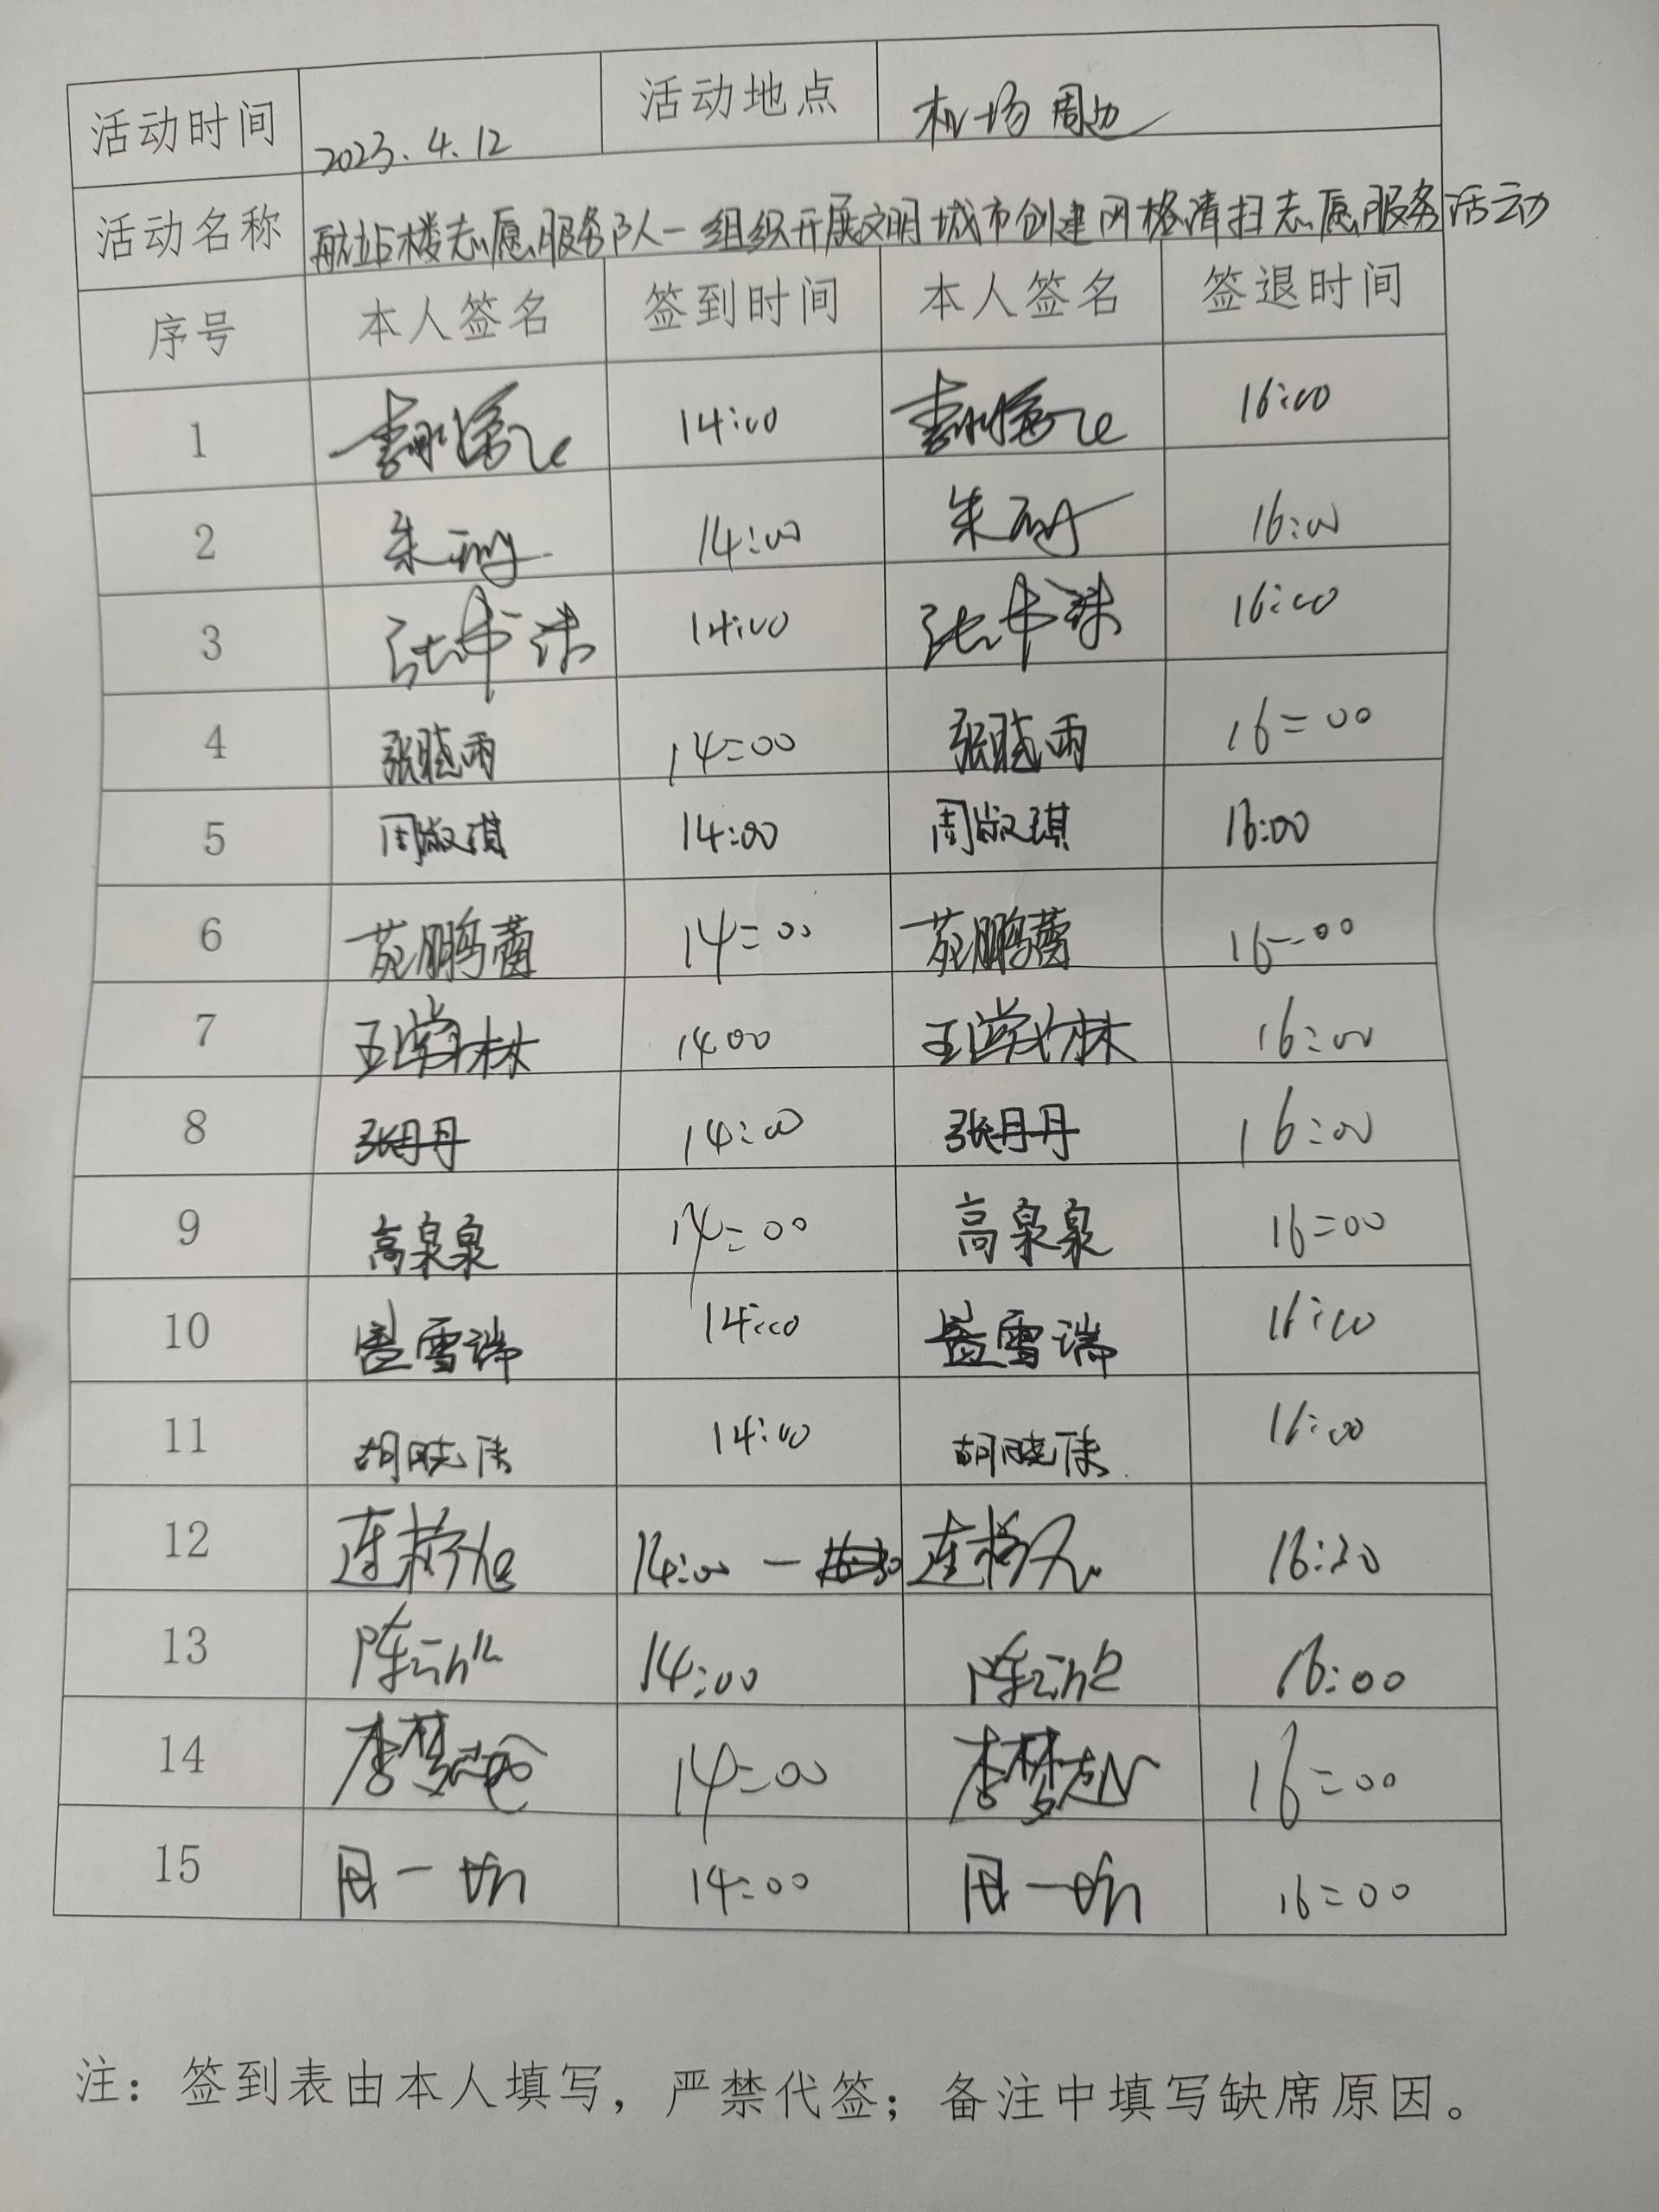 活动时间 2023.4.12 活动地点 机场周边
活动名称 航站楼志愿服务队一组织开展文明城市创建网格清扫志愿服务活动
序号 本人签名 签到时间 本人签名 签退时间
1 14:00 16:00
2 朱 14:00 朱 16:00
3 张 14:00 张 16:00
4 张晓雨 14:00 张晓雨 16:00
5 周淑琪 14:00 周淑琪 16:00
6 苑鹏蕾 14:00 苑鹏蕾 16:00
7 王学林 1400 王学林 16:00
8 张丹丹 14:00 张丹丹 16:00
9 高泉泉 14:00 高泉泉 16:00
10 盖雪瑞 14:00 盖雪瑞 16:00
11 胡晓倩 14:00 胡晓倩 16:00
12 连 14:00 — 连 16:20
13 陈 14:00 陈 16:00
14 李梦 14:00 李梦 16:00
15 周一 14:00 周一 16:00
注：签到表由本人填写，严禁代签；备注中填写缺席原因。